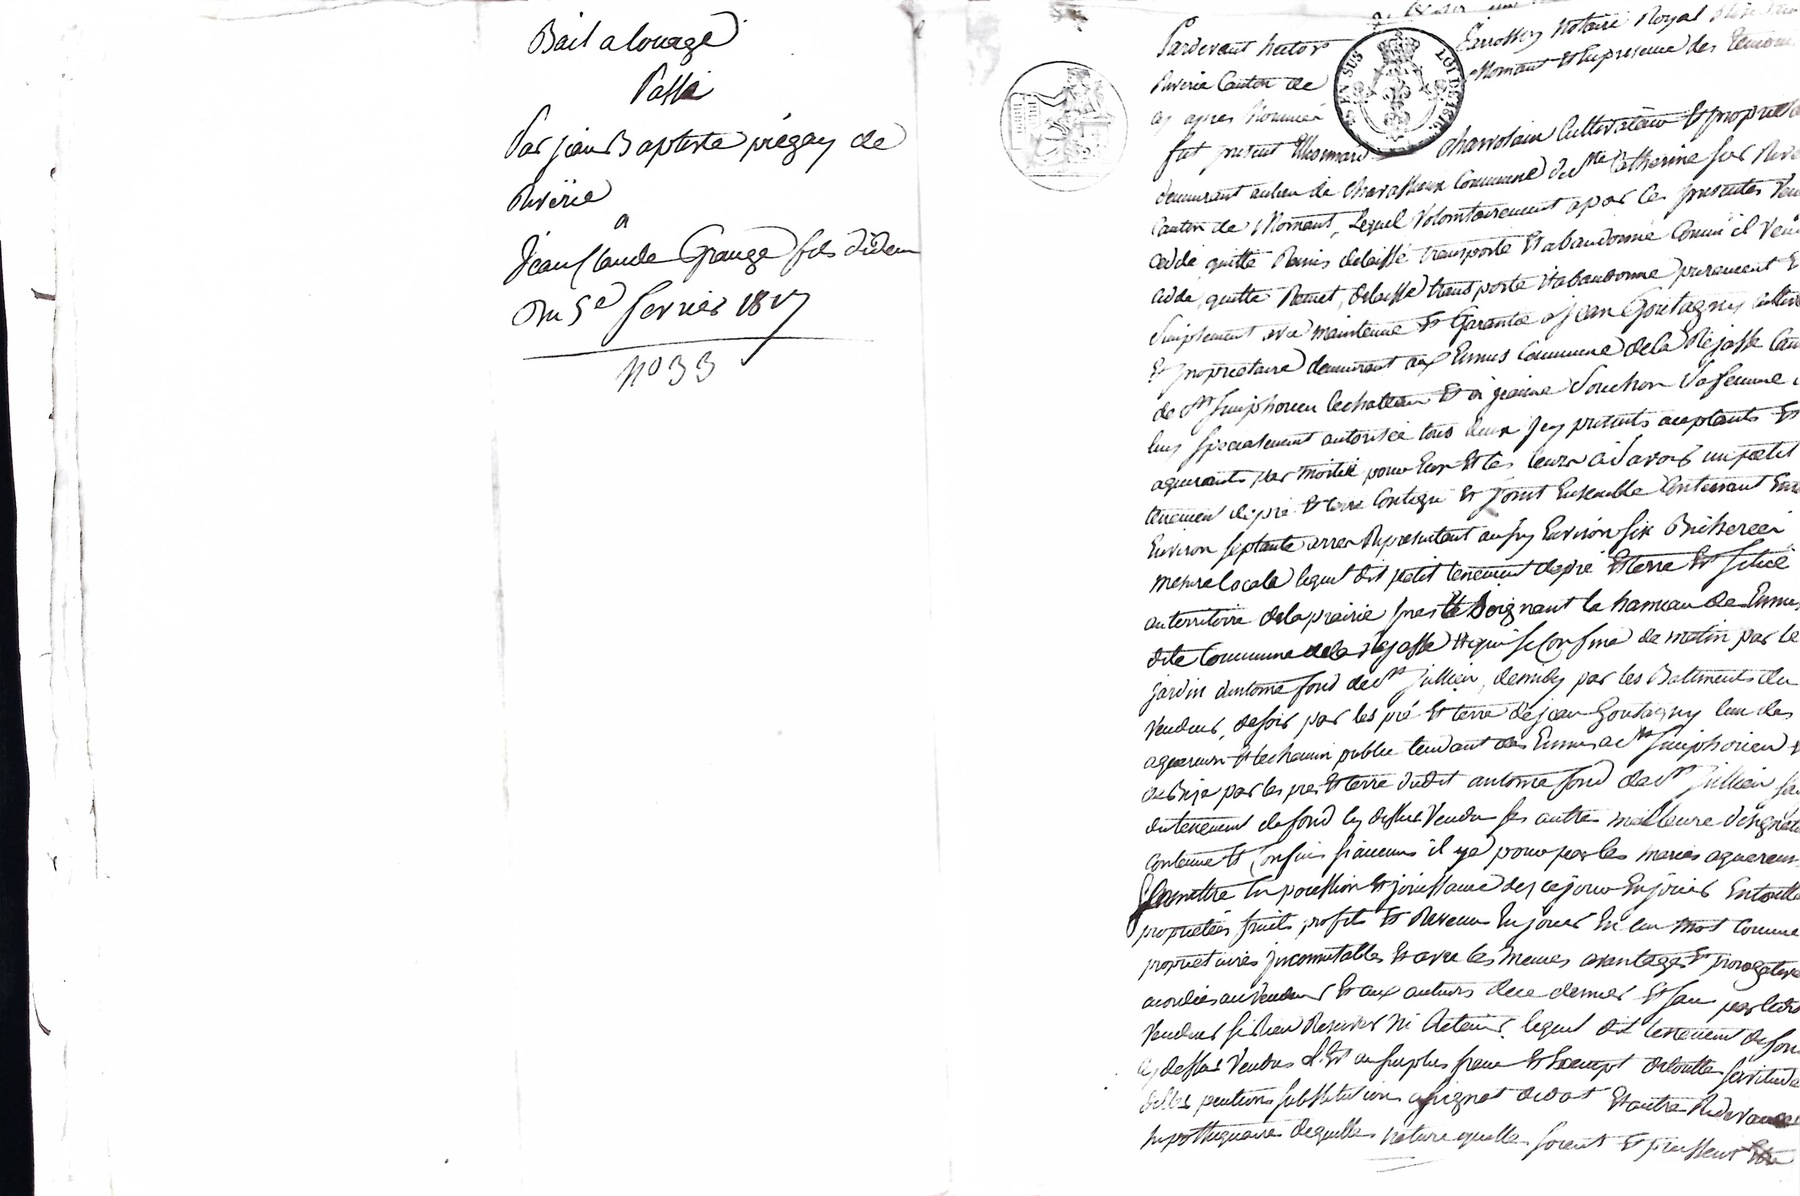 Bail a louage
Passé
Par jean Baptiste piégay de
Riverie
a
Jean Claude Grange fils d'idem
Du 5e fevrier 1817
No 33
Pardevant hector
notaire Royal
Riverie Canton de
Mornant Et En presence des temoins
cy apres Nommés
EN SUS LOI DE 1816.
fut present
charvolain Cultivateur Et proprietaire
demeurant au lieu de Commune de Ste Catherine sur Riverie
Canton de Mornant, Lequel Volontairement a par Ces presentes Vendu
Cedé, quitté Remis delaissé transporté Et abandonné Comm'il Vend
Cede, quitte Remet, delaisse transporte Et abandonne purement Et
Simplement avec maintenue Et Garantie a Jean Goutagny
Et proprietaire demeurant aux Eimes Commune de la Rejasse
de St Simphorien le chateau Et a jeanne Souchon Sa femme de
luy Specialement autorisée tous deux Icy presents aceptants Et
aquerants par moitié pour Eux Et les leurs a Savoir un petit
tenement de pré Et terre Contigu Et Joint Ensemble Contenant
Environ Septante ares Representant aussy Environ Six Bicherées
mesure locale lequel dit petit tenement de pré Et terre Est Situé
au territoire de la prairie pres le hameau de
dite Commune de la Rejasse Et qui se Confine de matin par le
jardin d'antoine fond de St Jullien, de midy par les Batiments du
Vendeur, de soir par les pré Et terre de jean Goutagny l'un des
aquereurs Et le chemin public tendant des Eimes a St Simphorien Et
de Bize par les pres Et terre dudit antoine fond de St Jullien
du tenement de fond Cy dessus Vendu Ses autres meilleure
contenue Et Confins Si aucuns il y a pour par les mariés aquereurs
Se mettre En possession Et jouissance des ce jour En jouir En toutte
proprietées fruits, profits Et Revenu En jouir En un Mot Comme
proprietaires jncomutables Et avec les memes avantages Et
au Vendeur Et aux auteurs de ce dernier Et Sans par ledit
Vendeur Se Rien Reserver Ni Retenir, lequel dit tenement de fond
Cy dessus Vendu Est au Surplus franc Et Exempt de toutte Servitude
pentions Substitutions dot Et autre Redevances
hypothequaire de quelle nature quelle Soient Et puissent Etre